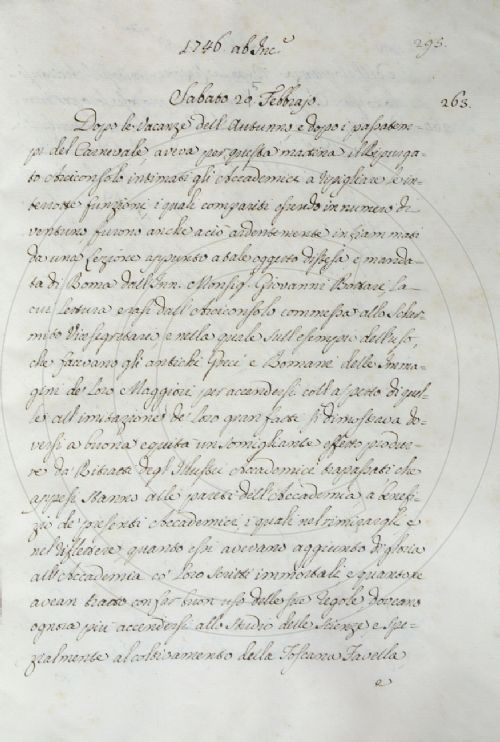 1746. ab Inc.e
295.
Sabato 29. Febbrajo.
263.
Dopo le Vacanze dell'Autunno e dopo i passatem-
pi del Carnevale, aveva per questa mattina il Ripurga-
to Arciconsolo intimati gli Accademici a ripigliare le in-
terrotte funzioni, i quali compariti essendo in numero di
ventuno, furono anche a ciò ardentemente infiammati
da una Lezione appunto a tale oggetto distesa e manda-
ta di Roma dall'Inn. Monsig.r Giovanni Bottari, la
cui lettura erasi dall'Arciconsolo commessa allo Scher-
mito Vicesegretario, e nella quale sull'esempio dell'uso,
che facevano gli antichi Greci e Romani delle Imma-
gini de' loro Maggiori per accendersi coll'aspetto di quel-
le all'imitazione de' loro gran fatti si dimostrava do-
versi a buona equità un somigliante effetto produr-
re da' Ritratti degl'Illustri Accademici trapassati che
appesi stanno alle pareti dell'Accademia a benefi-
zio de' presenti Accademici, i quali nel rimirargli e
nel riflettere quanto essi avevano aggiunto di gloria
all'Accademia co' loro scritti immortali e quanto se
avean tratto con far buon uso delle sue regole doveano
ognora più accendersi allo Studio delle Scienze e spe-
zialmente al coltivamento della Toscana Favella
e